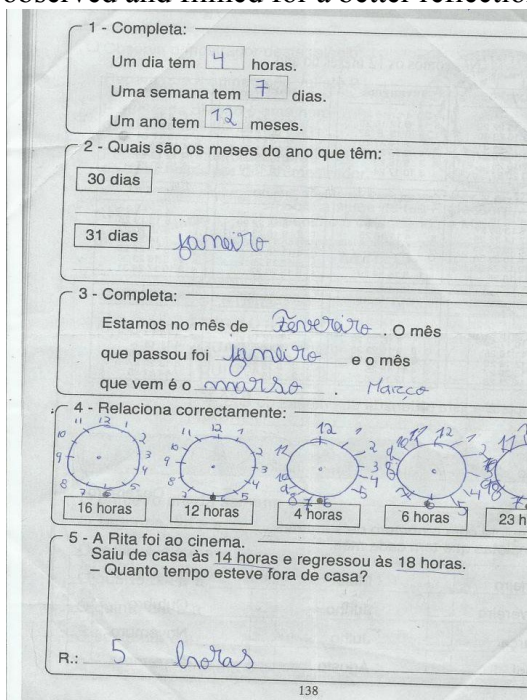 observed and filmed for a better reflection
1 - Completa:
Um dia tem 4 horas.
Uma semana tem 7 dias.
Um ano tem 12 meses.
2 - Quais são os meses do ano que têm:
30 dias
31 dias janeiro
3 - Completa:
Estamos no mês de Fevereiro . O mês
que passou foi janeiro e o mês
que vem é o marso . Março
4 - Relaciona correctamente:
16 horas 12 horas 4 horas 6 horas 23 h
5 - A Rita foi ao cinema.
Saiu de casa às 14 horas e regressou às 18 horas.
– Quanto tempo esteve fora de casa?
R.: 5 horas
138